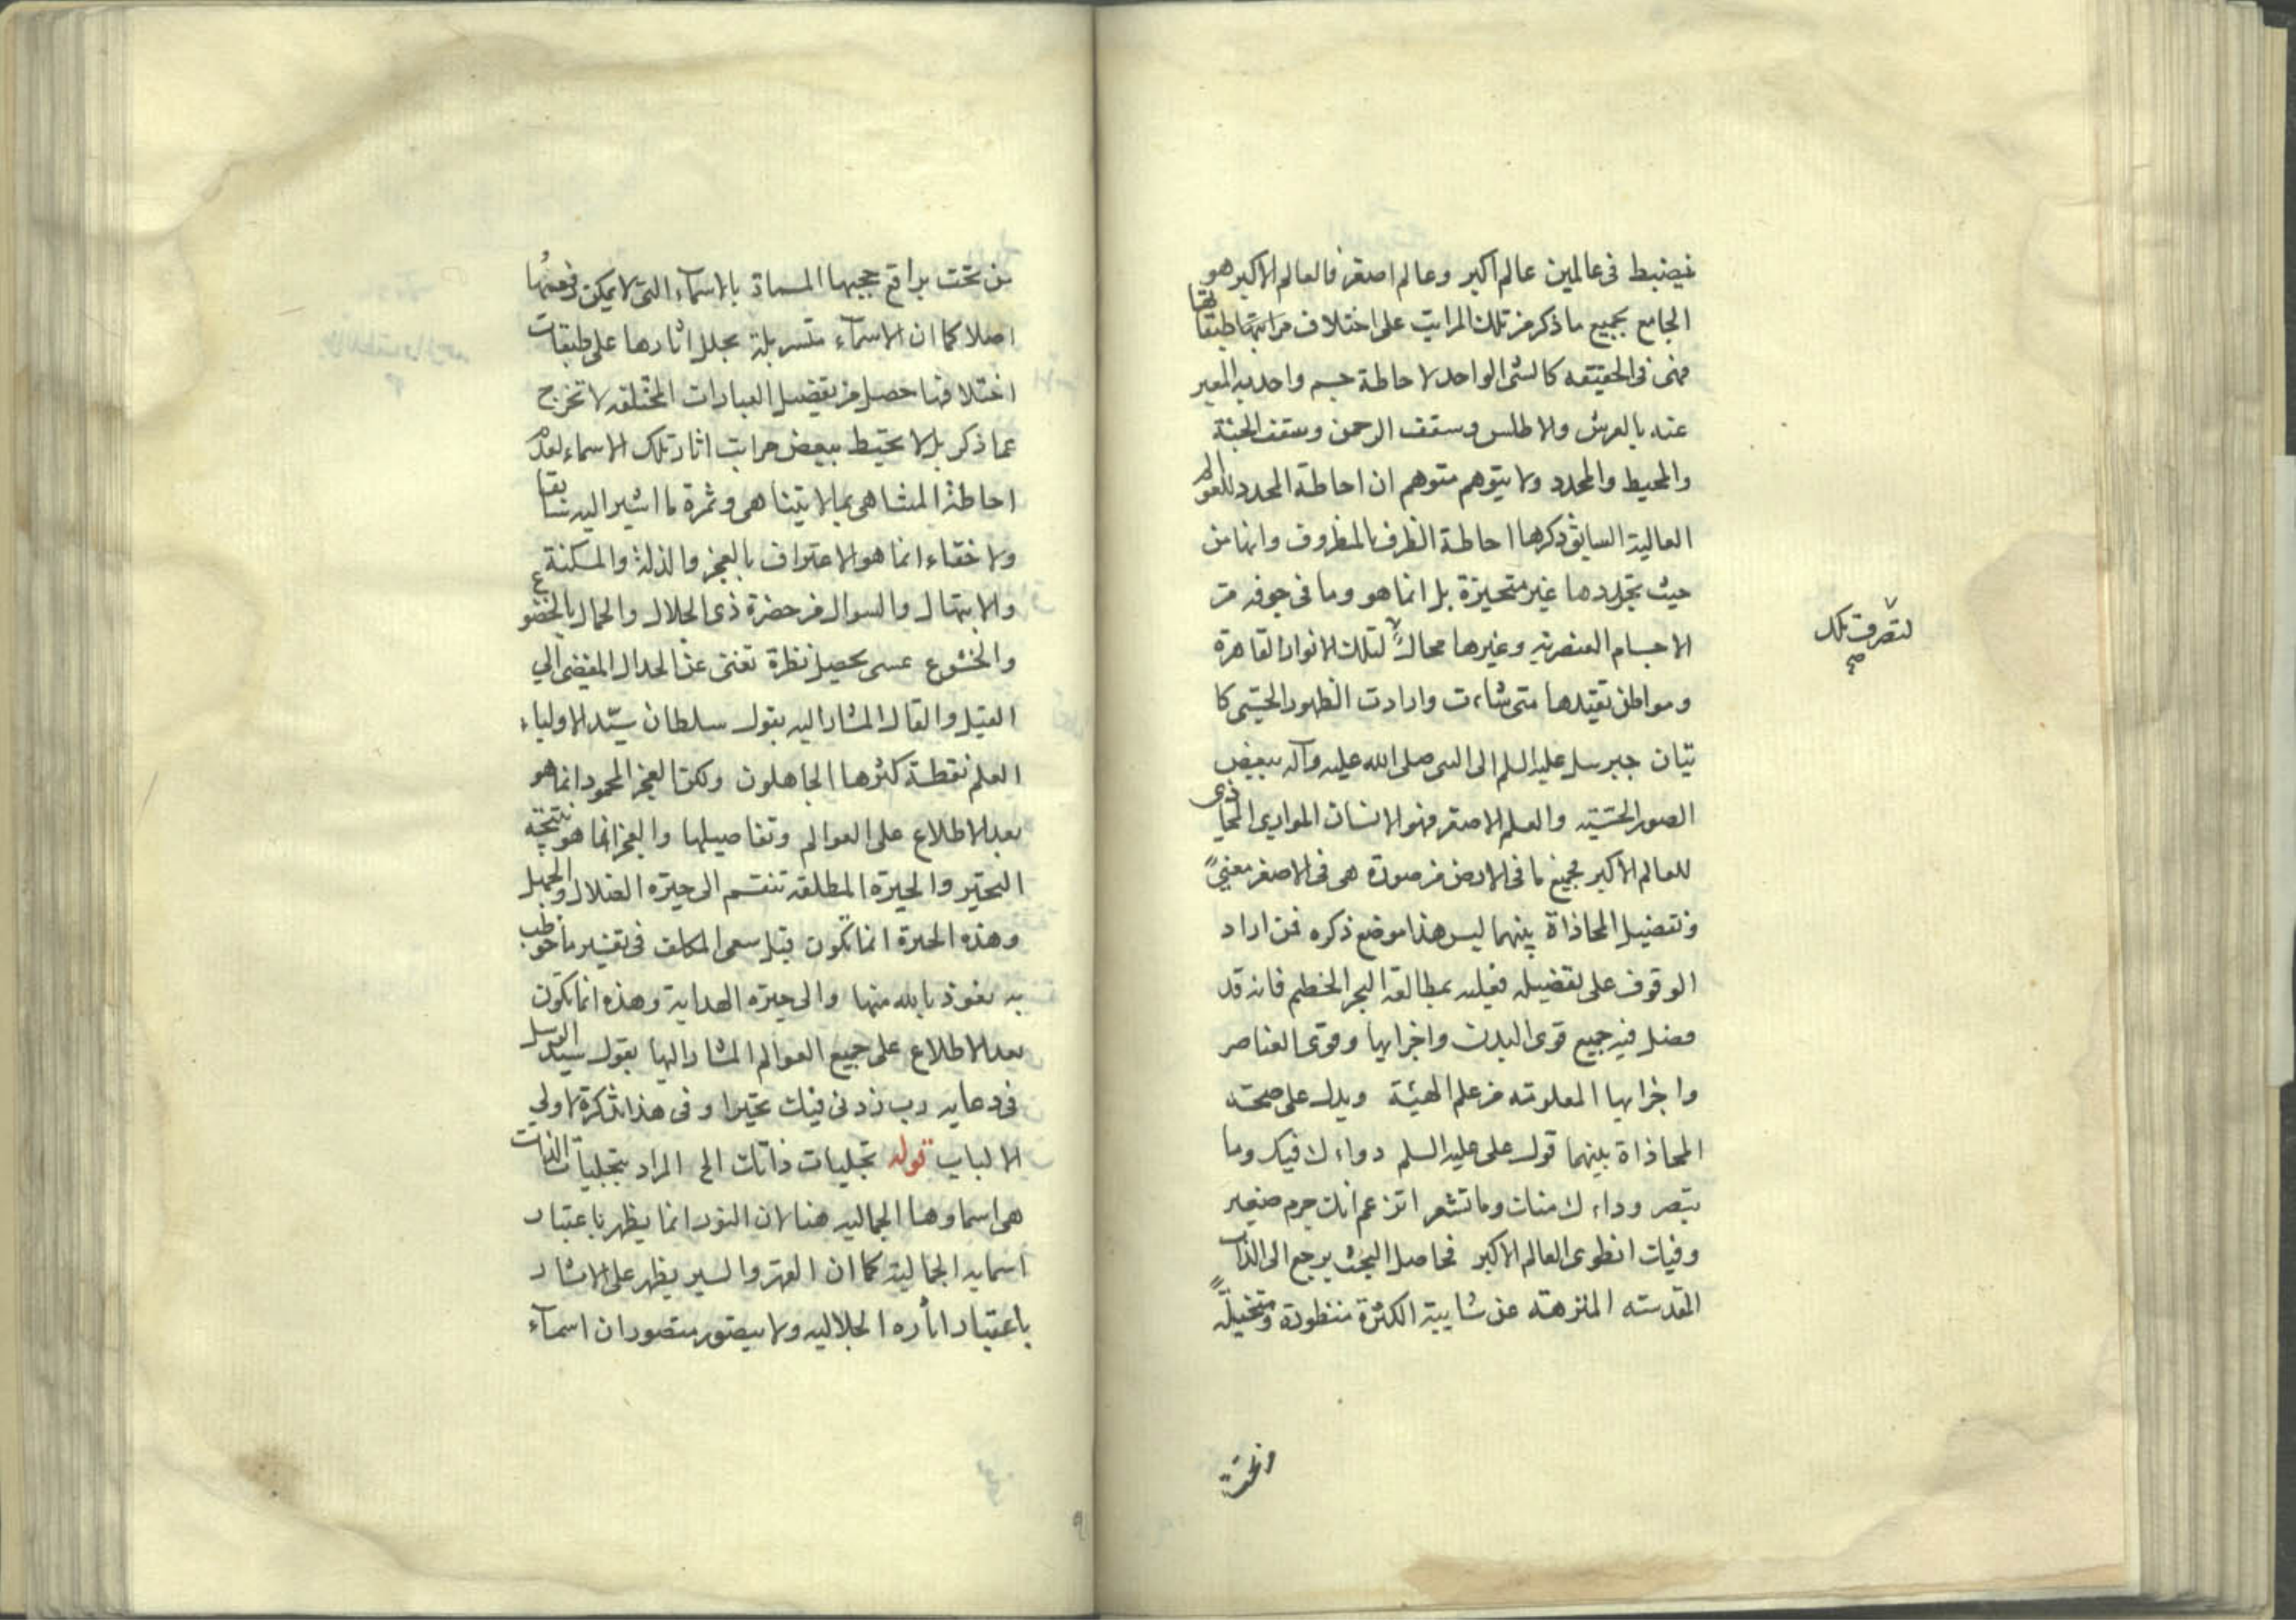 فيضبط في عالمين عالم اكبر وعالم اصغر فالعالم الاكبر هو
الجامع بجميع ما ذكر من تلك المراتب على اختلاف مراتبها طبقاتها
فهى فى الحقيقه كالشئ الواحد لاحاطة جسم واحد به المعبر
عنه بالعرش والاطلس وسقف الرحمن وسقف الجنة
والمحيط والمحدد ولا يتوهم متوهم ان احاطة المحدد للعوالم
العالية السابق ذكرها احاطة الظرف بالمظروف وانها من
حيث تجردها غير متحيزة بل انما هو وما فى جوفه من
الاجسام العنصريه وغيرها محالّ لتلك الانوار القاهرة
لتصرف تلك
صح
ومواطن تقيدها متى شاءت وارادت الظهور الحسّى كا
تيان جبرئيل عليه السلم الى النبى صلى الله عليه وآله ببعض
الصور الحسّيّه والعلم الاصغر فهو الانسان الموازى المحاذى
للعالم الاكبر فجميع ما فى الارض من صورة هى فى الاصغر معنىً
وتفصيل المحاذاة بينهما ليس هذا موضع ذكره فمن اراد
الوقوف على تفصيله فعليه بمطالعة البحر الخضم فانه قد
فصل فيه جميع قوى البدن واجزايها وقوى العناصر
واجزايها المعلومه من علم الهيئة ويدل على صحة
المحاذاة بينهما قول على عليه السلم دواءك فيك وما
تبصر وداءك منك وما تشعر اتزعم انك جرم صغير
وفيك انطوى العالم الاكبر فحاصل البحث يرجع الى الذات
المقدسه المنزهة عن شايبة الكثرة منظورة ومتخيلةً
من تحت
من تحت براقع حجبها المسماة بالاسماء التى لا يمكن رفعها
اصلا كما ان الاسماء متسربلة بحلل اثارها على طبقات
اختلافها حصل من تفصيل العبارات المختلفه لا تخرج
عما ذكر بل لا تحيط ببعض مراتب اثار تلك الاسماء لعدم
احاطة المتناهى بما لا يتناهى وثمرة ما اشير اليه سابقا
ولا خفاء انما هو الاعتراف بالعجز والذلة والمسكنة
والابتهال والسوال من حضرة ذى الجلال والجمال بالخضوع
والخشوع عسى يحصل نظرة تغنى عن الجدال المفضى الى
القيل والقال المشار اليه بقول سلطان سيّد الاولياء
العلم نقطة كثرها الجاهلون ولكن العجز المحمود انما هو
بعد الاطلاع على العوالم وتفاصيلها والعجز انما هو نتيجة
التحيّر والحيرة المطلقه تنقسم الى حيرة الضلال والجهل
وهذه الحيرة انما تكون قبل سعى المكلف فى تفسير ما خوطب
به نعوذ بالله منها والى حيرة الهداية وهذه انما تكون
بعد الاطلاع على جميع العوالم المشار اليها بقول سيد الرسل
فى دعايه رب زدنى فيك تحيرا وفى هذا تذكرة لاولى
الالباب قوله تجليات ذاتك الخ المراد بتجليات الذات
هى اسماوها الجماليه هنا لان النور انما يظهر باعتبار
اسمايه الجمالية كما ان القهر والستر يظهر على الاشار
باعتبار اثاره الجلاليه ولا يتصور متصور ان اسماء